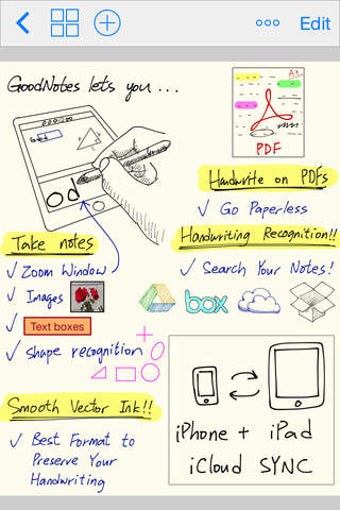 Edit
GoodNotes lets you ...
A+
PDF
Good
Od
Handwrite on PDFs
Go Paperless
Handwriting Recognition!!
Search Your Notes!
Take notes
Zoom Window
Images
Text boxes
Shape recognition
box
Smooth Vector Ink!!
Best Format to
Preserve Your
Handwriting
iPhone + iPad
iCloud SYNC